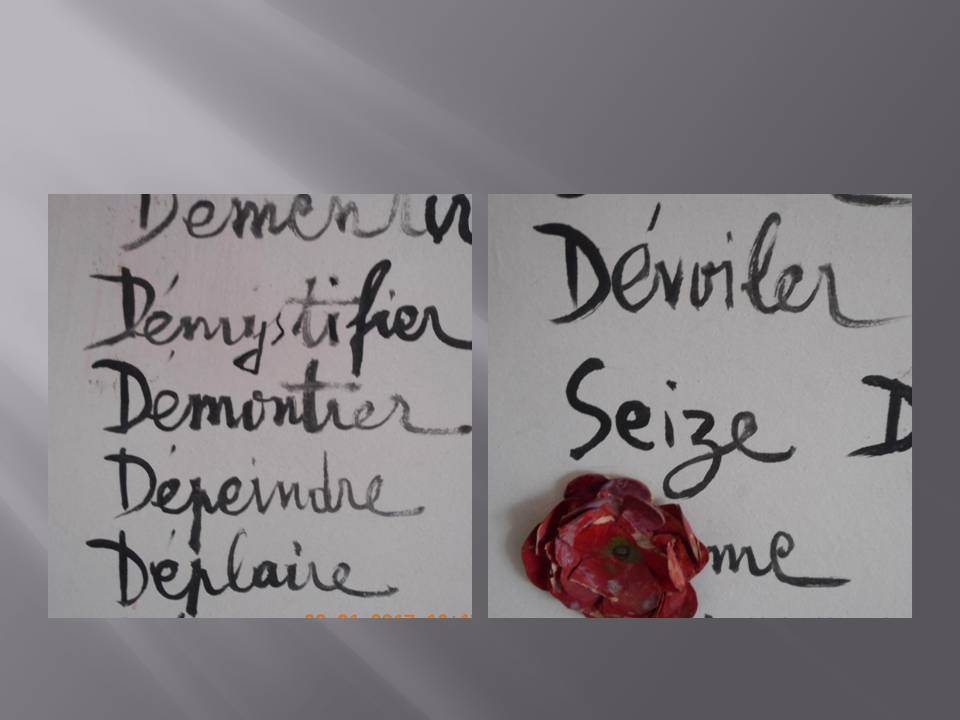 Démentir
Démystifier
Démontrer
Dépeindre
Déplaire
Dévoiler
Seize D
me